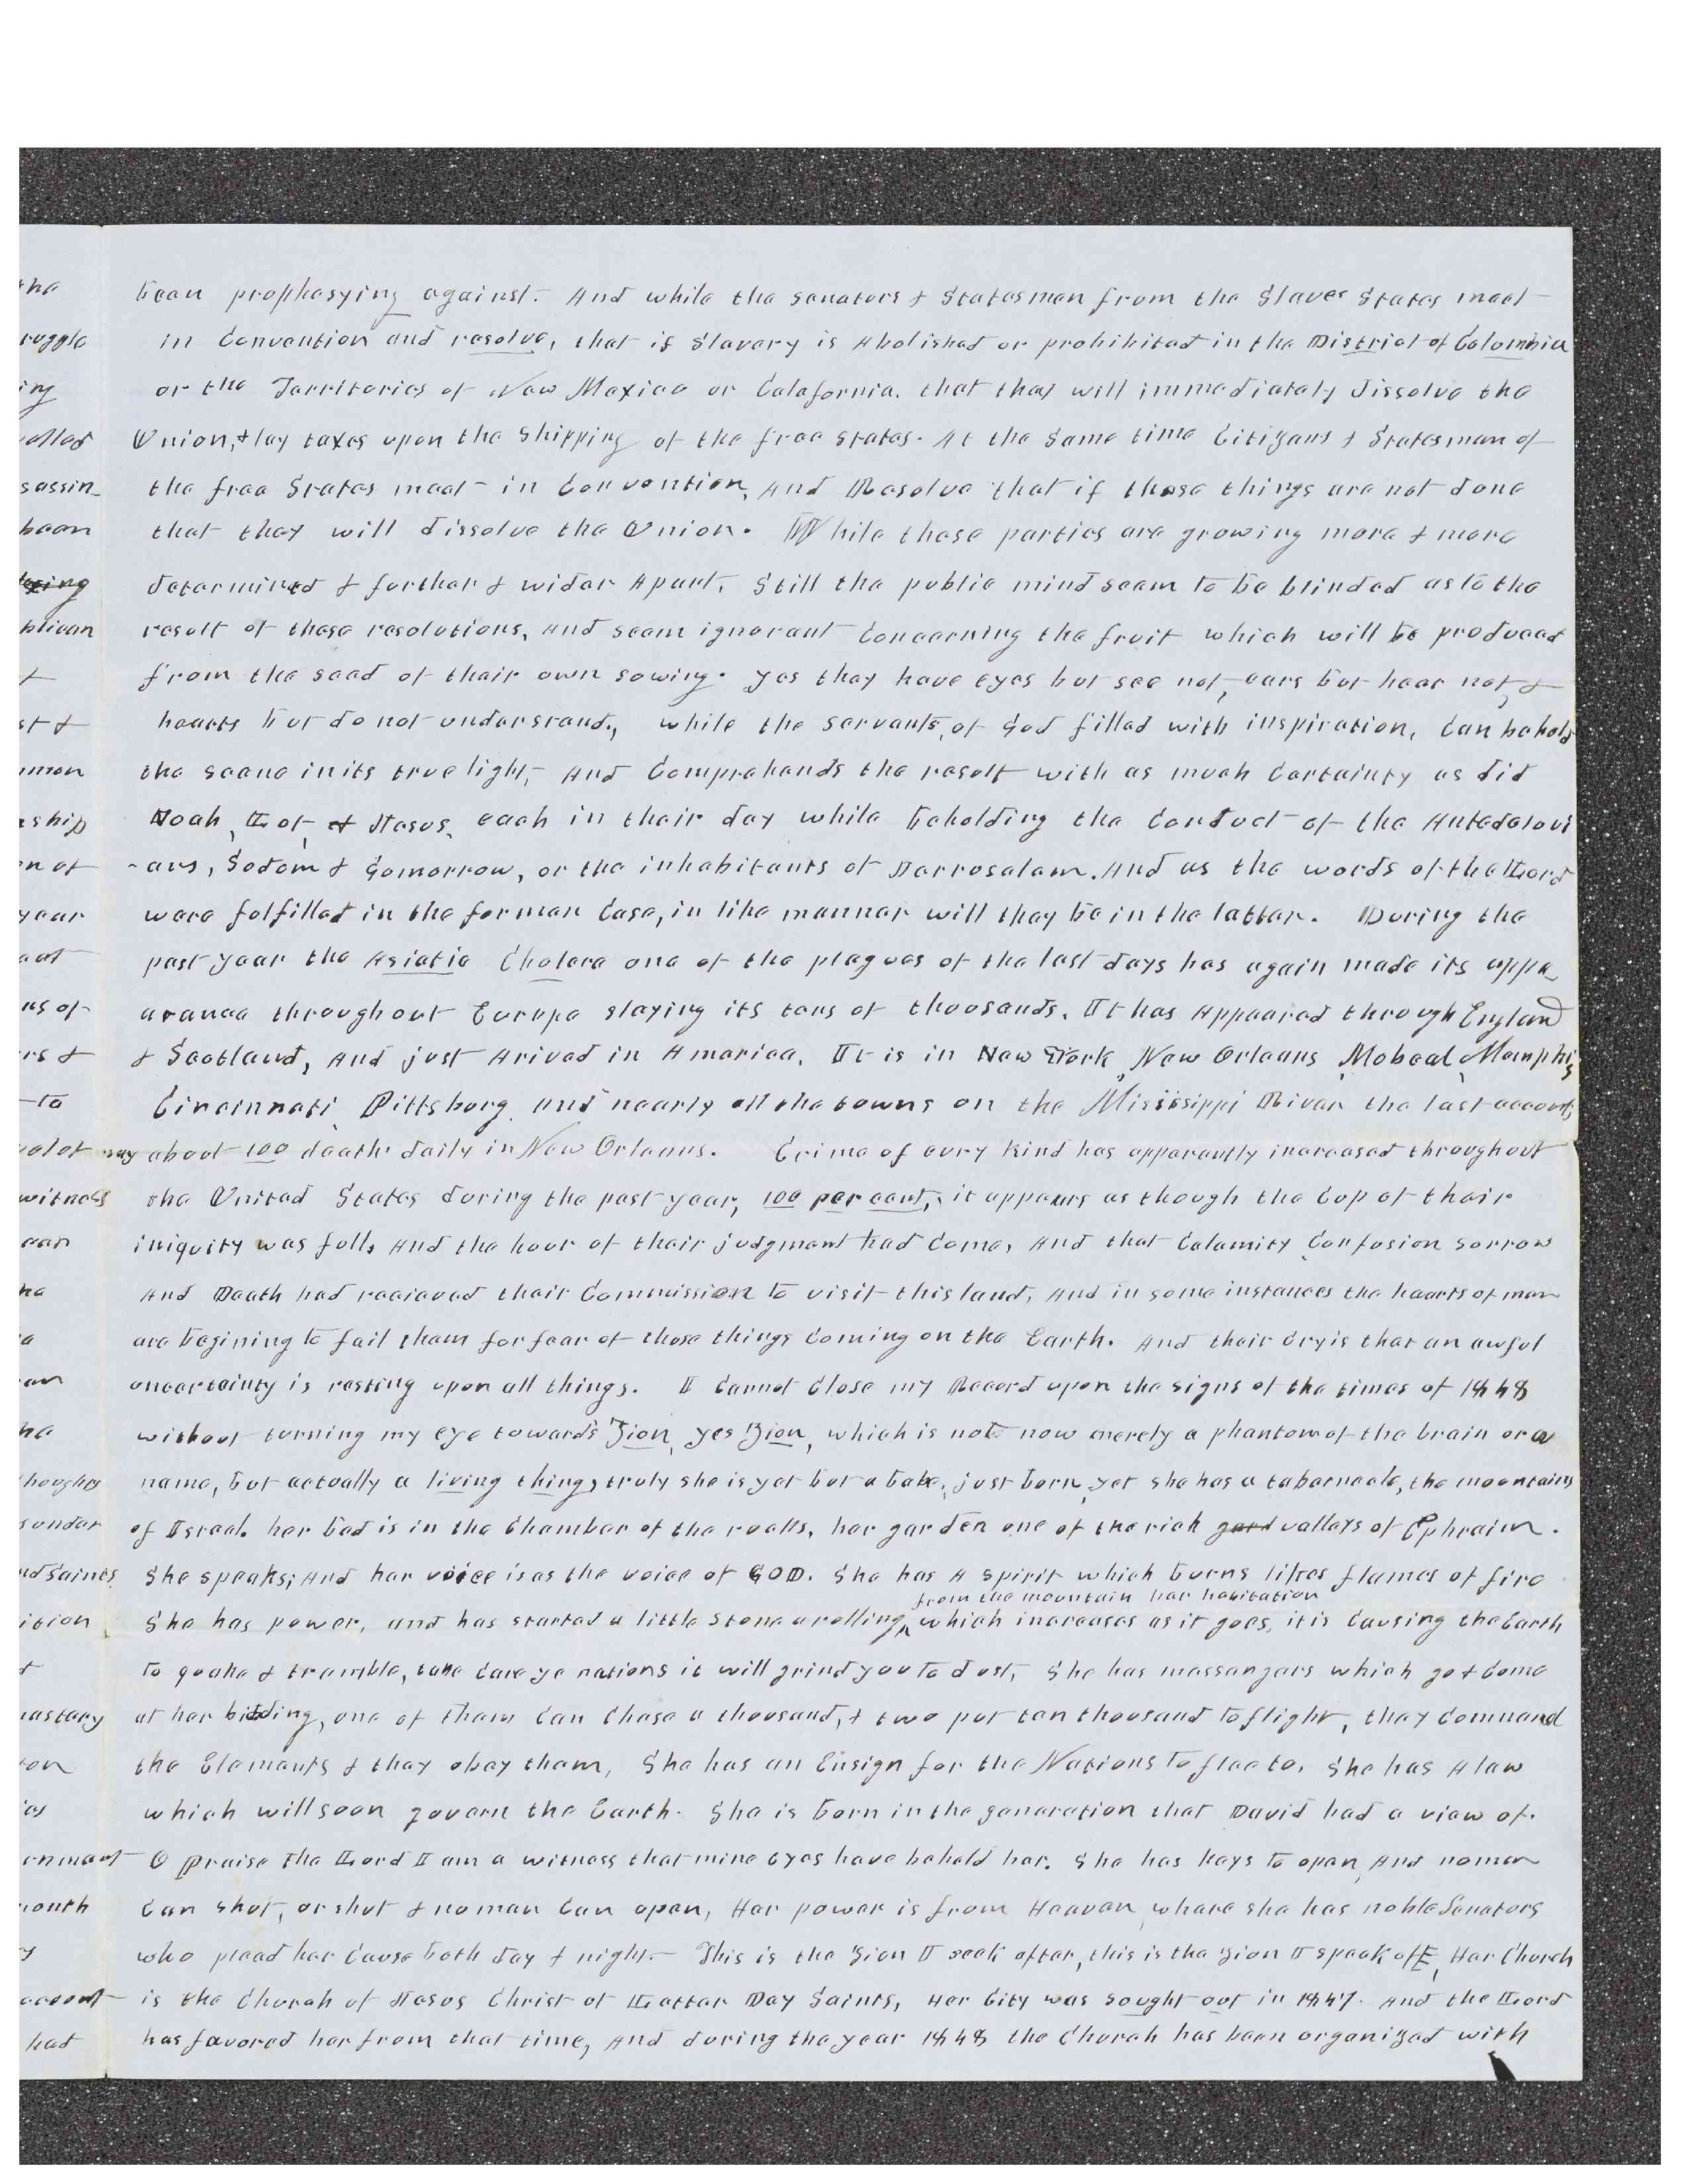 been prophesying against. And while the senators & Statesmen from the Slaves States meet
in Convention and resolve, that if Slavery is Abolished or prohibited in the District of Colombia
or the Territories of New Mexico or Calafornia. that they will immediately dissolve the
Union, & lay taxes upon the Shipping of the free states. At the same time Citizens & Statesmen of
the free States meet in Convention, And Resolve that if those things are not done
that they will dissolve the Union. While those parties are growing more & more
determined & further & wider Apart, Still the public mind seem to be blinded as to the
result of these resolutions, and seem ignorant Concerning the fruit which will be produced
from the seed of their own sowing. yes they have eyes but see not, ears but hear not, &
hearts but do not understand, while the servants, of God filled with inspiration, Can behold
the scene in its true light, And Comprehends the result with as much Certainty as did
Noah, Lot, & Jesus, each in their day while beholding the Conduct of the Antedeluvi
-ans, Sodom & Gomorrow, or the inhabitants of Jerrosalem. And as the words of the Lord
were fulfilled in the former Case, in like manner will they be in the latter. During the
past year the Asiatic Cholera one of the plagues of the last days has again made its appe
arance throughout Europe slaying its tens of thousands. It has Appeared through England
& Scotland, And just Arived in America. It is in New York, New Orleans, Mobeal, Memphis
Cincinnati, Pittsburg, and nearly all the towns on the Mississippi River the last accounts
say about 100 deaths daily in New Orleans. Crime of evry kind has apparently increased throughout
the United States during the past year, 100 per cent, it appears as though the Cup of their
iniquity was full, And the hour of their judgment had Come, And that Calamity, Confusion sorrow
And Death had recieved their Commission to visit this land, And in some instances the hearts of men
are begining to fail them for fear of those things Coming on the Earth. And their Cry is that an awful
uncertainty is resting upon all things. I Cannot Close my Record upon the signs of the times of 1848
without turning my eye towards Zion, yes Zion, which is not now merely a phantom of the brain or a
name, but actually a living thing, truly she is yet but a babe, just born, yet she has a tabernacle, the mountains
of Israel. her bed is in the Chamber of the rocks, her garden one of the rich gard valleys of Ephraim.
She speaks; And her voice is as the voice of GOD. She has A spirit which burns likes flames of fire
from the mountain her habitation
She has power, and has started a little stone a rolling, which increases as it goes, it is Causing the Earth
to quake & tremble, take Care ye nations it will grind you to dust, She has messengers which go & Come
at her bidding, one of them Can Chase a thousand, & two put ten thousand to flight, they Command
the Elements & they obey them, She has an Ensign for the Nations to flee to. She has A law
which will soon govern the Earth. She is born in the generation that David had a view of.
O Praise the Lord I am a witness that mine eyes have beheld her. She has keys to open, And no man
Can shut, or shut & no man Can open, Her power is from Heaven, where she has noble Senators
who plead her Cause both day & night. This is the Zion I seek after, this is the Zion I speak off, Her Church
is the Church of Jesus Christ of Latter Day Saints, Her City was sought out in 1847. And the Lord
has favored her from that time, And during the year 1848 the Church has been organized with